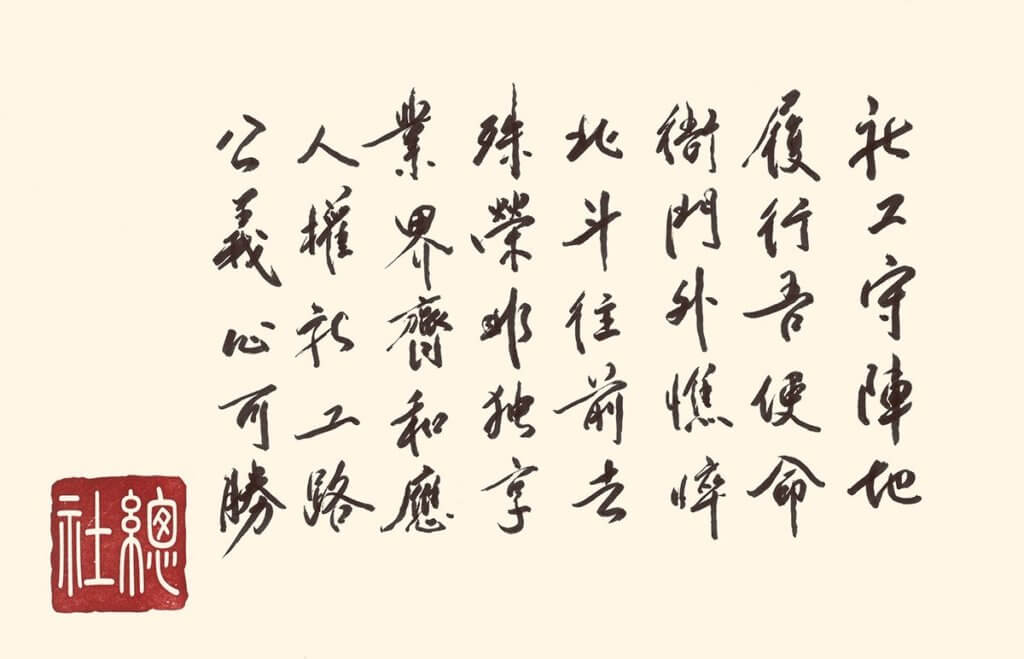 社工守陣地
履行吾使命
衙門外憔悴
北斗往前去
殊榮非独享
業界齊和應
人權社工路
公義心可勝
總社